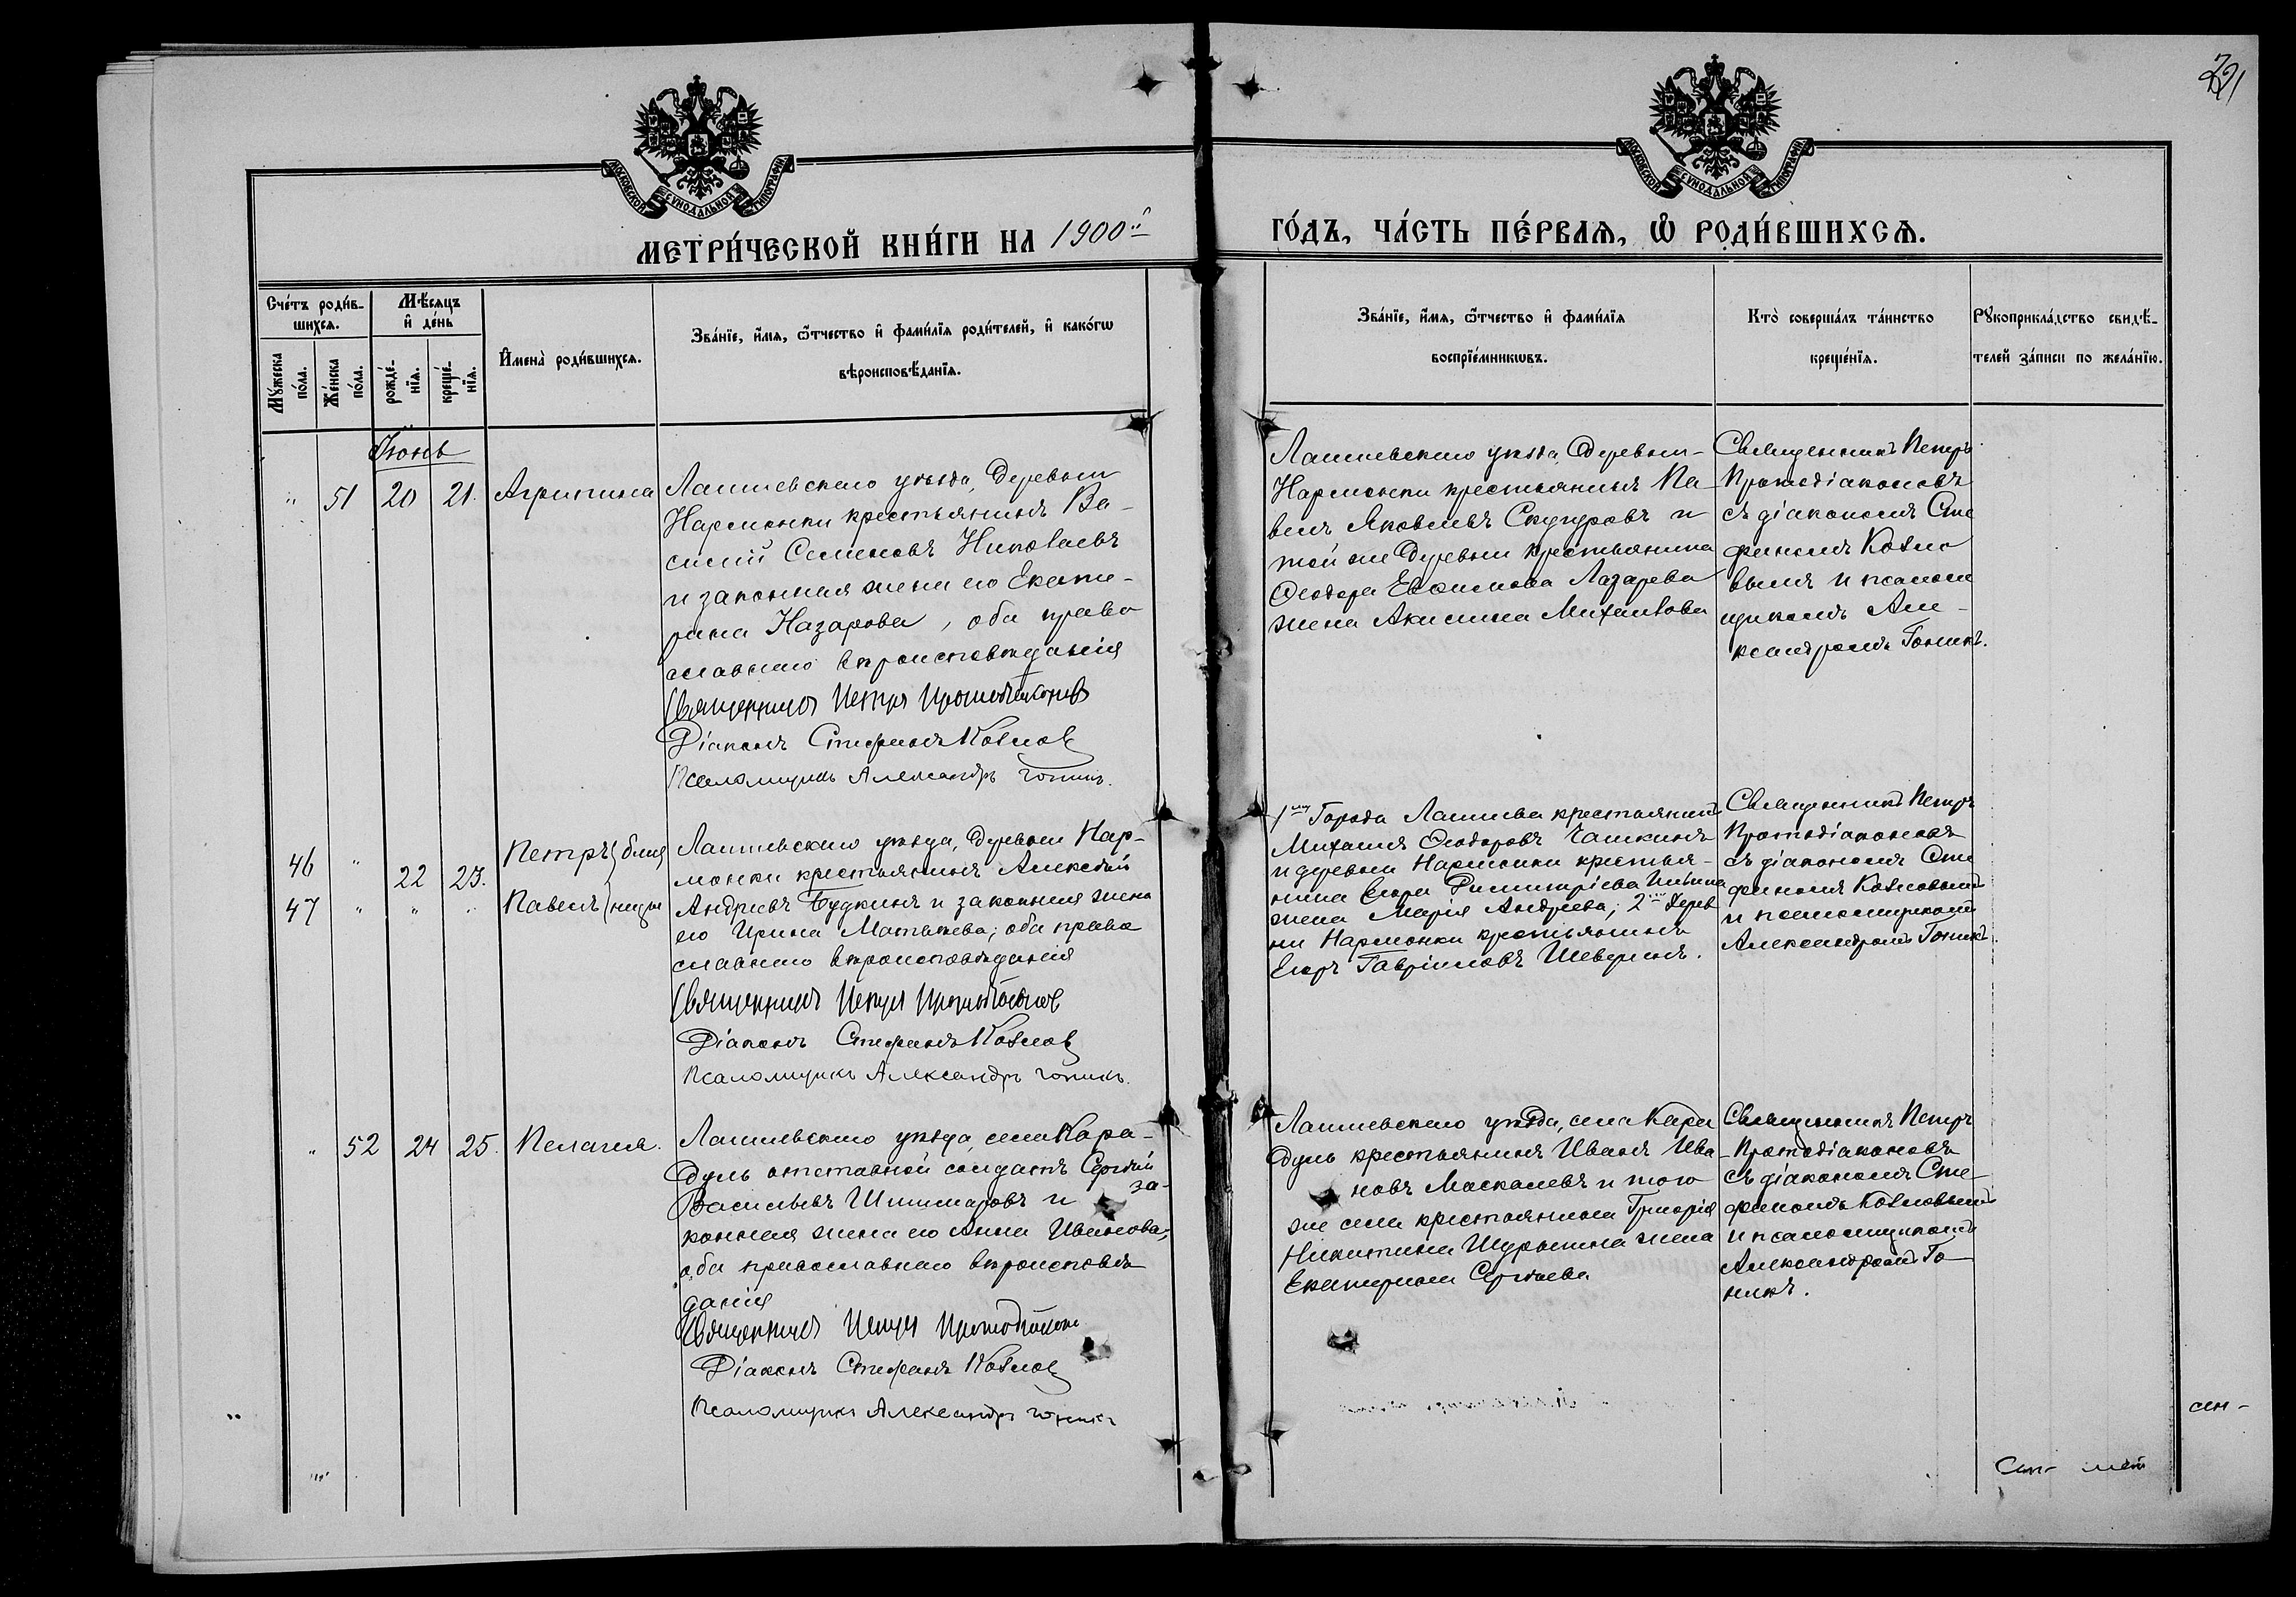 221
МОСКОВСКОЙ СѴНОДАЛЬНОЙ ТИПОГРАФІИ
МОСКОВСКОЙ СѴНОДАЛЬНОЙ ТИПОГРАФІИ
МЕТРИ́ЧЕСКОЙ КНИ́ГИ НА 1900й
ГО́ДЪ, ЧА́СТЬ ПЕ́РВАѦ, Ѡ҆ РОДИ́ВШИХСѦ.
Сче́тъ роди́в-
шихсѧ.
Мѣ́сѧцъ
и҆ де́нь
Мꙋ́жеска по́ла.
Же́нска по́ла.
рожде́-
нїѧ.
креще́-
нїѧ.
И҆мена̀ роди́вшихсѧ.
Зва́нїе, и҆́мѧ, ѻ҆́тчество и҆ фами́лїѧ роди́телей, и҆ како́гѡ
вѣроисповѣ́данїѧ.
Зва́нїе, и҆́мѧ, ѻ҆́тчество и҆ фами́лїѧ
воспрїе́мникѡвъ.
Кто̀ соверша́лъ та́инство
креще́нїѧ.
Рꙋкоприкла́дство свидѣ́-
телей за́писи по жела́нїю.
Іюнь
" 51 20 21. Агрипина
Лаишевскаго уѣзда, деревни
Нармонки крестьянинъ Ва-
силій Семеновъ Николаевъ
и законная жена его Екате-
рина Назарова, оба право
славнаго вѣроисповѣданія
Священникъ Петръ Протодіаконовъ
Діаконъ Стефанъ Козлов
Псаломщикъ Александръ Гоникъ.
Лаишевскаго уѣзда, деревни
Нармонки крестьянинъ Па-
велъ Яковлевъ Скугуровъ и
той же деревни крестьянина
Ѳеодора Евѳимова Лазарева
жена Акилина Михайлова
Священникъ Петръ
Протодіаконовъ
съ діакономъ Сте
фаномъ Козло
вымъ и псалом
щикомъ Але-
ксандромъ Гоникъ.
46 " 22 23. Петръ } близ
47 " " " Павелъ } нецы
Лаишевскаго уѣзда, деревни Нар-
монки крестьянинъ Алексѣй
Андреевъ Будкинъ и законная жена
его Ирина Матвѣева; оба право
славнаго вѣроисповѣданія
Священникъ Петръ Протодіаконов
Діаконъ Стефанъ Козлов
Псаломщикъ Александръ Гоникъ.
1го Города Лаишева крестьянинъ
Михаилъ Ѳеодоровъ Чашкинъ
и деревни Нармонки крестья-
нина Егора Димитріева
жена Марія Андреева; 2го дерев
ни Нармонки крестьянинъ
Егоръ Гавріиловъ Шеверинъ.
Священникъ Петръ
Протодіаконовъ
съ діакономъ Сте
фаномъ Козловымъ
и псаломщикомъ
Александромъ Гоникъ.
" 52 24 25. Пелагія.
Лаишевскаго уѣзда, села Кара-
дуль отставной солдатъ Сергѣй
Васильевъ Шишмаровъ и за-
конная жена его Анна Иванова;
оба православнаго вѣроисповѣ
данія
Священникъ Петръ Протодіаконо
Діаконъ Стефанъ Козлов
Псаломщикъ Александръ Гоникъ
Лаишевскаго уѣзда, села Кара
дуль крестьянинъ Иванъ Ива
новъ Москалевъ и того
же села крестьянина Григорія
Никитина Шурыгина жена
Екатерина Сергѣева
Священникъ Петръ
Протодіаконовъ
съ діакономъ Сте-
фаномъ Козловымъ
и псаломщикомъ
Александромъ Го-
никъ.